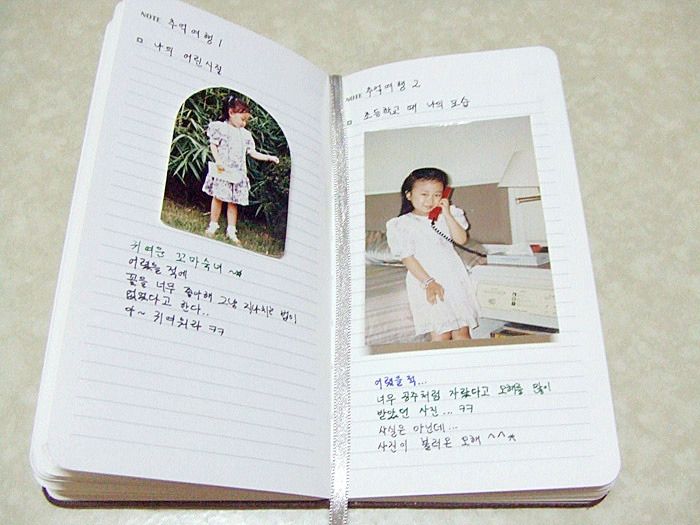 NOTE 추억여행 1
□ 나의 어린시절
귀여운 꼬마숙녀 ~
어렸을 적에
꽃을 너무 좋아해 그냥 지나치는 법이
없었다고 한다..
아~ 귀여워라 ㅋㅋ
NOTE 추억여행 2
□ 초등학교 때 나의 모습
어렸을 적...
너무 공주처럼 자랐다고 오해를 많이
받았던 사진... ㅋㅋ
사실은 아닌데...
사진이 불러온 오해 ^^*